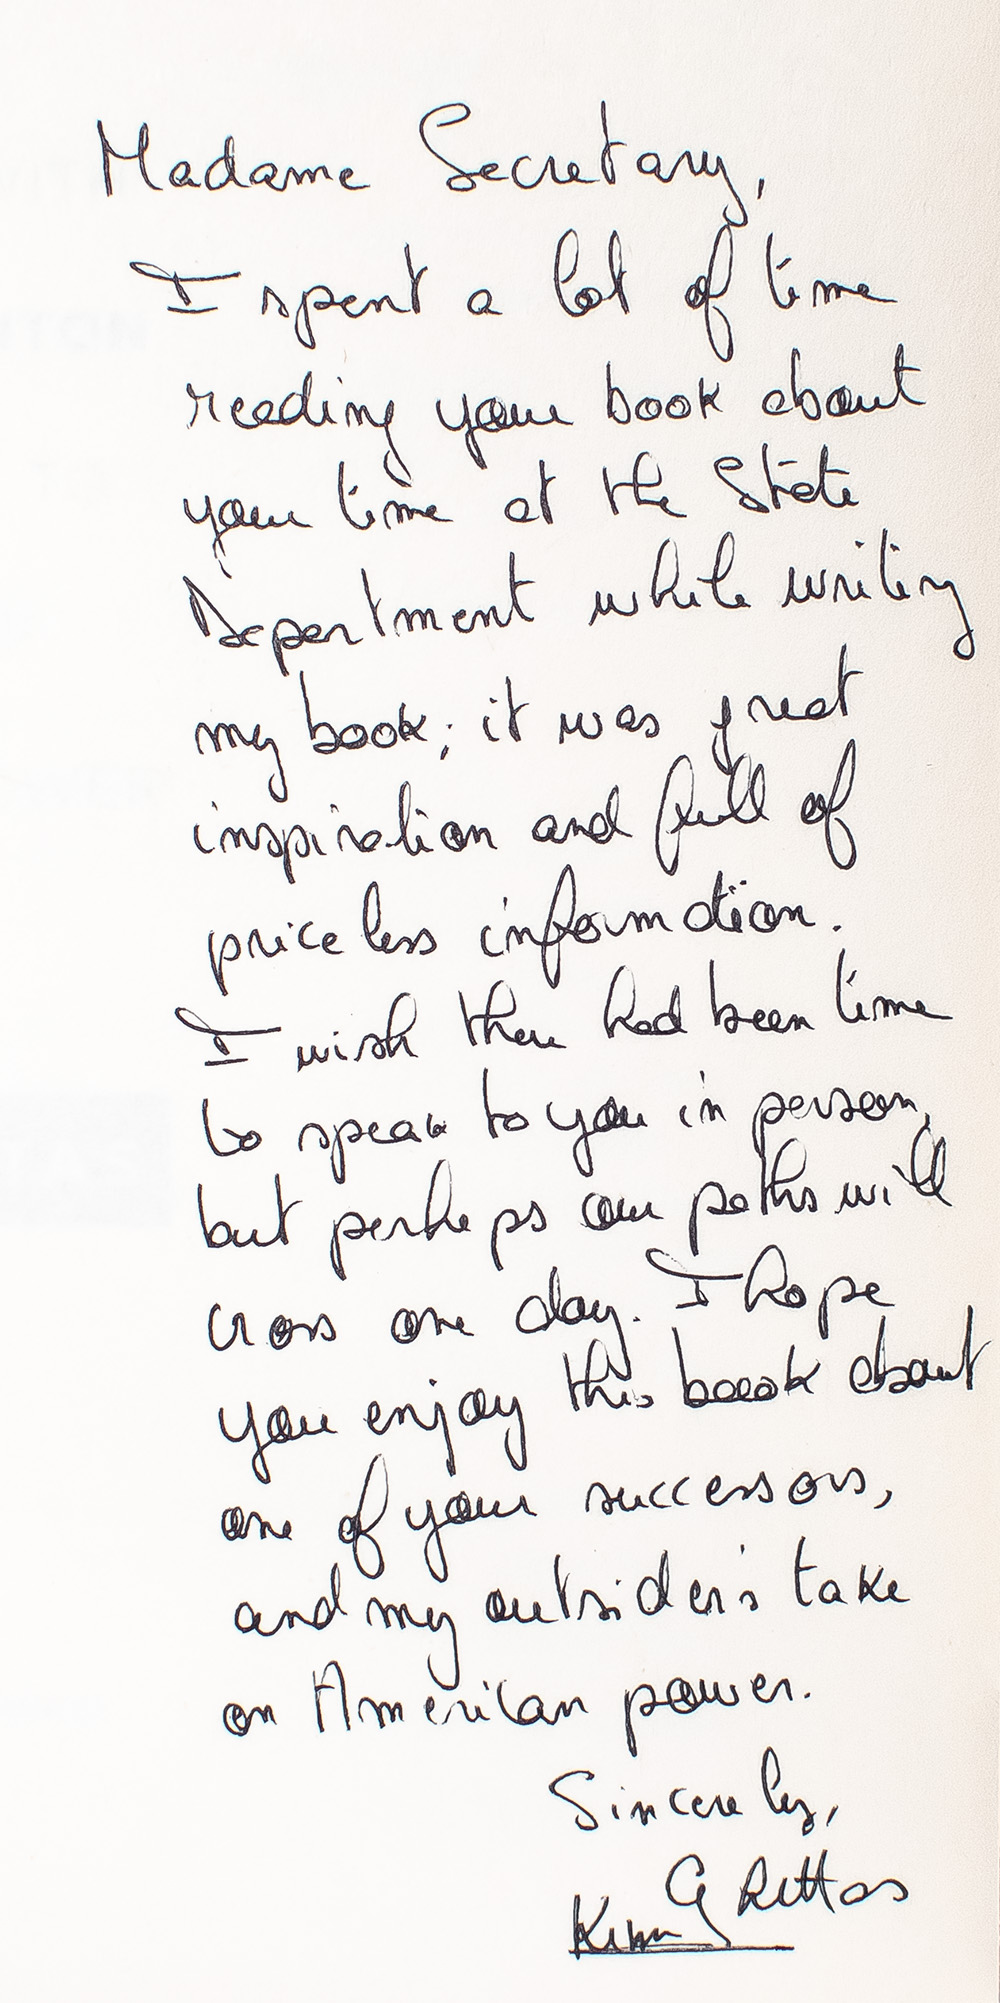 Madame Secretary,
I spent a lot of time
reading your book about
your time at the State
Department while writing
my book; it was great
inspiration and full of
priceless information.
I wish there had been time
to speak to you in person,
but perhaps our paths will
cross one day. I hope
you enjoy this book about
one of your successors,
and my outsider's take
on American power.
Sincerely,
Kim G